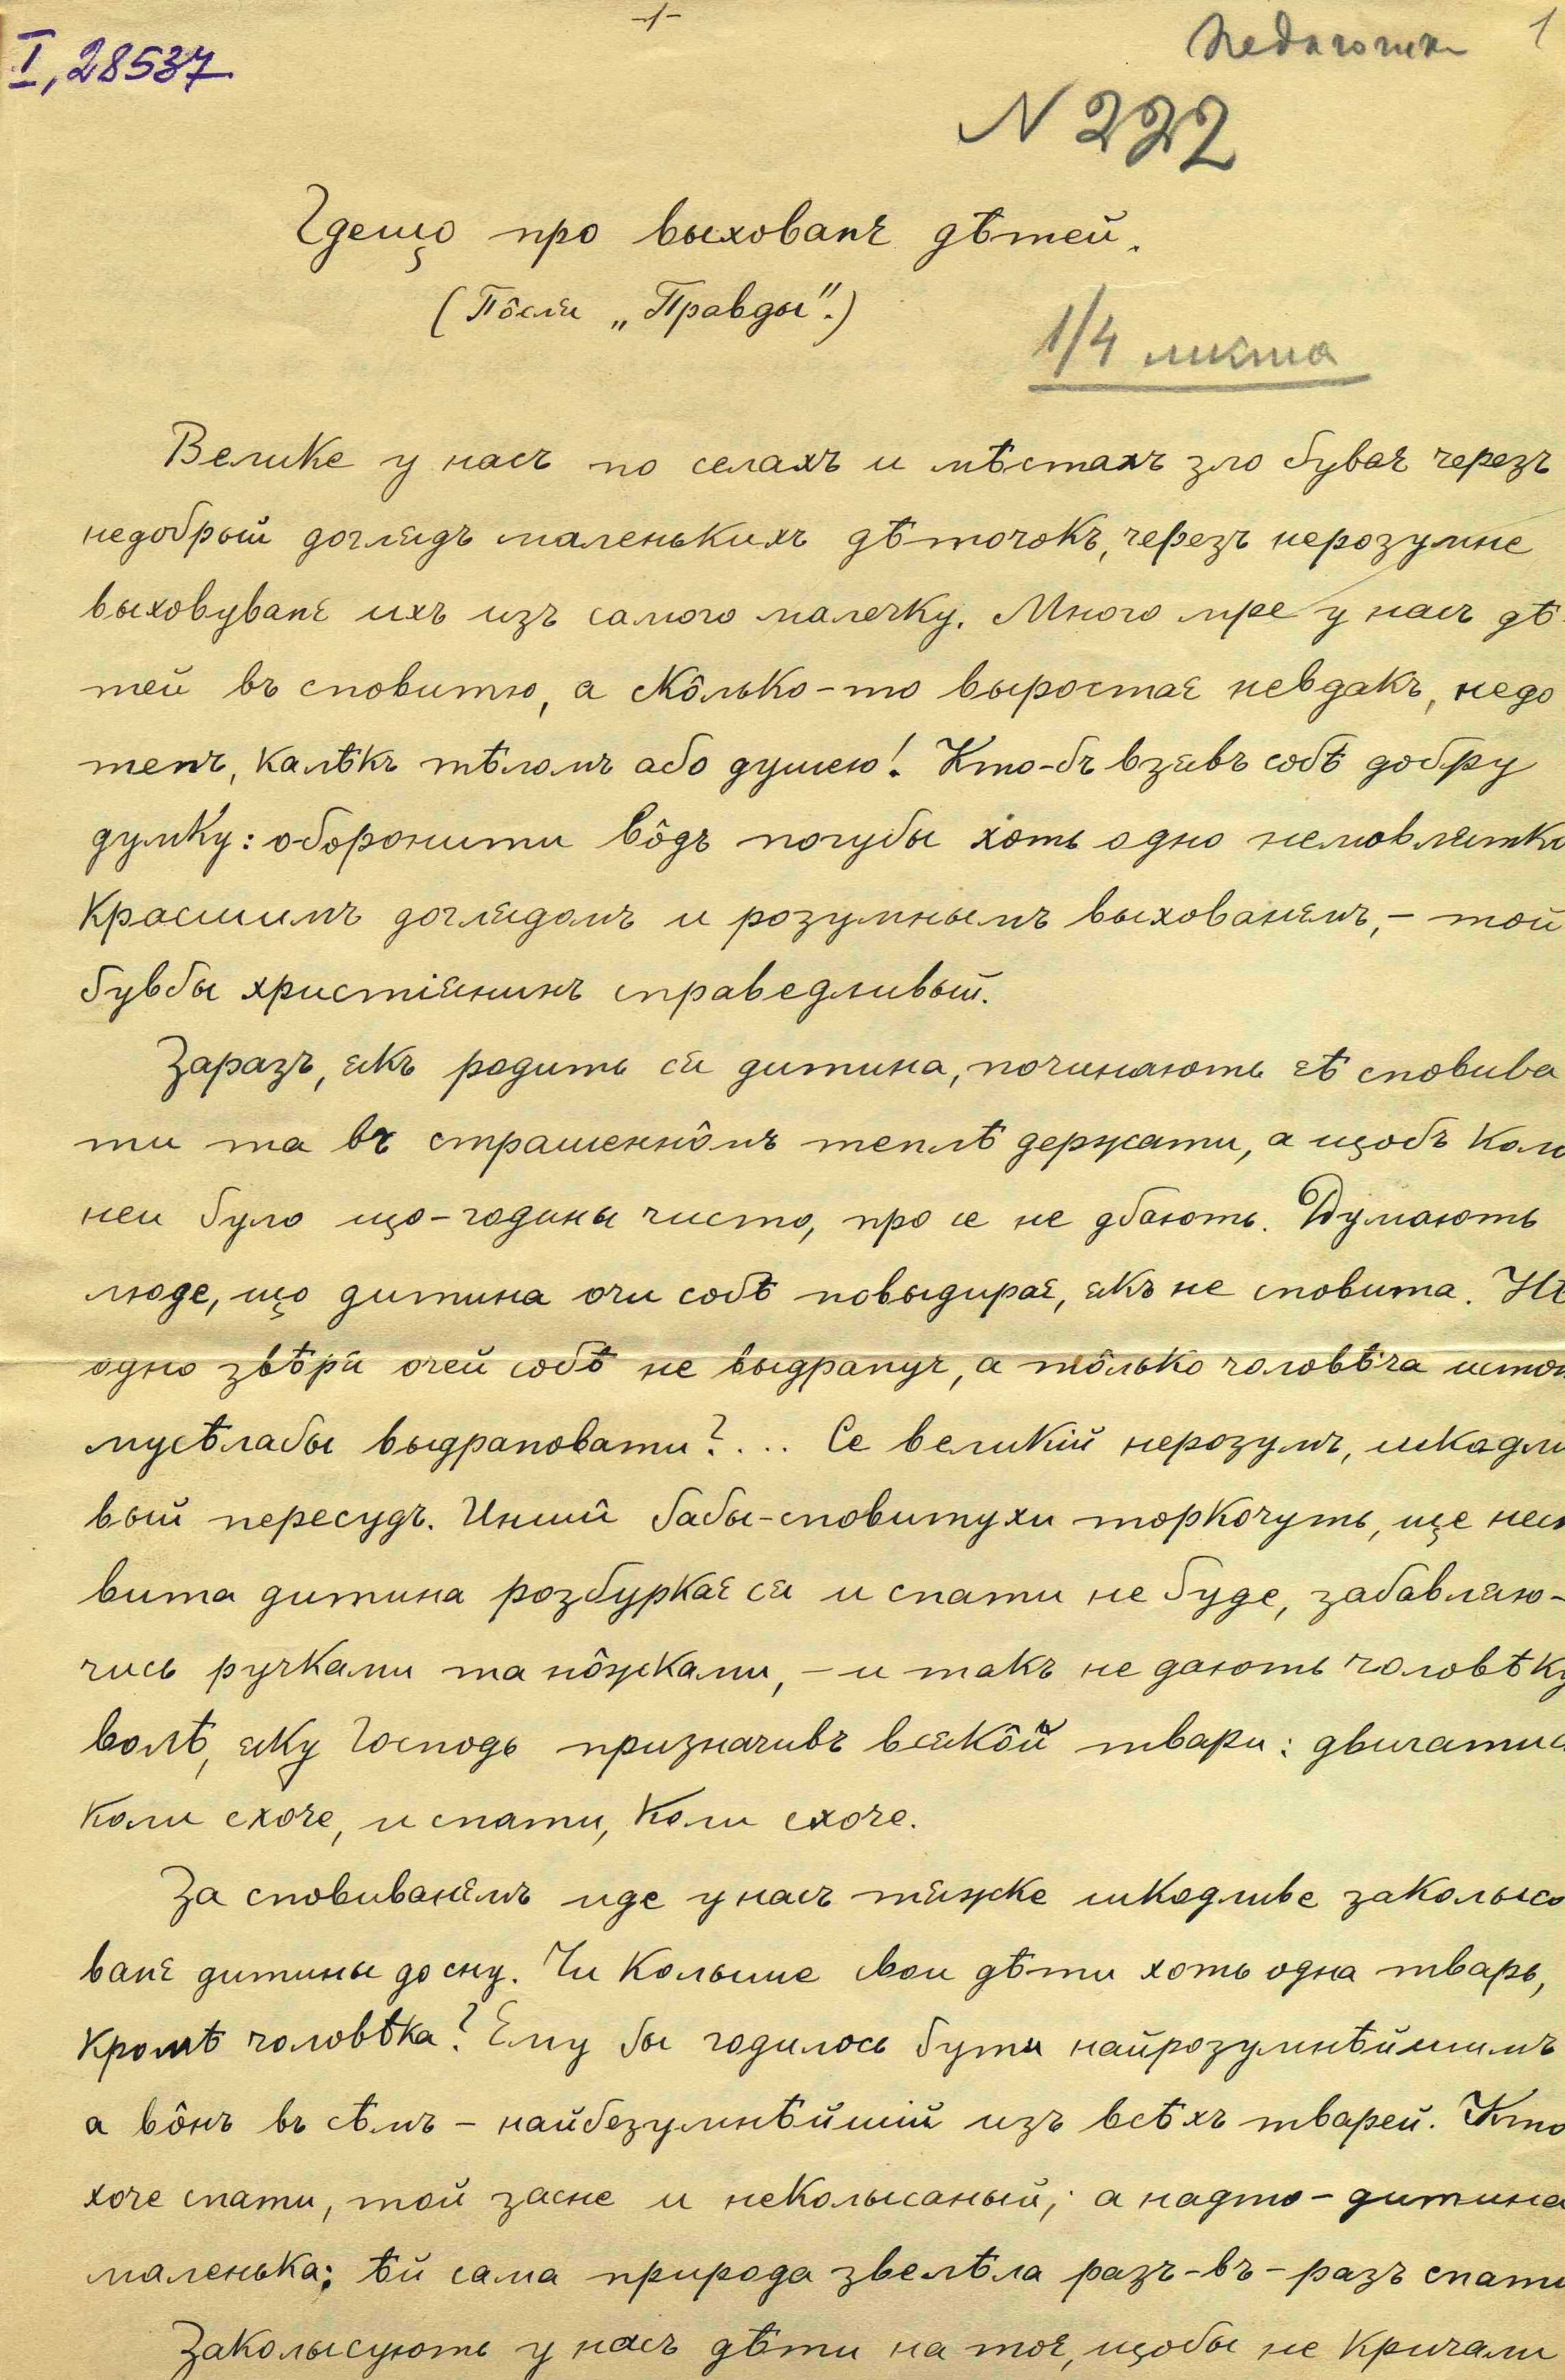 -1-
Педагогика
1
I, 28537
N 222
Гдещо про выхованє дѣтей.
(Пôсля „Правды".)
1/4 листа
Велике у насъ по селахъ и мѣстахъ зло буває черезъ
недобрый доглядъ маленькихъ дѣточокъ, через нерозумне
выховуванє ихъ изъ самого малечку. Много мре у насъ дѣ-
тей въ сповитю, а скôлько-то выростає невдакъ, недо
тепъ, калѣкъ тѣломъ або душею! Кто-бъ взявъ собѣ добру
думку: оборонити вôдъ погубы хоть одно немовлятко
красшимъ доглядомъ и розумнымъ выхованємъ, – той
бувбы християнинъ справедливый.
Заразъ, якъ родить ся дитина, починають єѣ сповива
ти та въ страшеннôмъ теплѣ держати, а щобъ коло
неи було що-годины чисто, про се не дбають. Думають
люде, що дитина очи собѣ повыдирає, якъ не сповита. Нѣ
одно звѣря очей собѣ не выдрапує, а тôлько чоловѣча
мусѣлабы выдраповати?... Се великій нерозумъ, шкадли
вый пересудъ. Иншiи бабы-сповитухи торкочуть, ще неспо
вита дитина розбуркає ся и спати не буде, забавляю-
чись ручками та нôжками, – и такъ не дають чоловѣку
волѣ, яку Господь призначивъ всякôй твари: двигатись
коли схоче, и спати, коли схоче.
За сповиванємъ иде у насъ тяжке шкодливе заколысо
ванє дитины до сну. Чи колыше свои дѣти хоть одна тварь,
кромѣ чоловѣка? Ему бы годилось бути найрозумнѣйшимъ
а вôнъ въ сѣмъ – найбезумнѣйшій изъ всѣхъ тварей. Кто
хоче спати, той засне и неколысаный; а надто – дитина
маленька: ѣй сама природа звелѣла разъ-въ-разъ спати
Заколысують у насъ дѣти на тоє, щобы не кричали